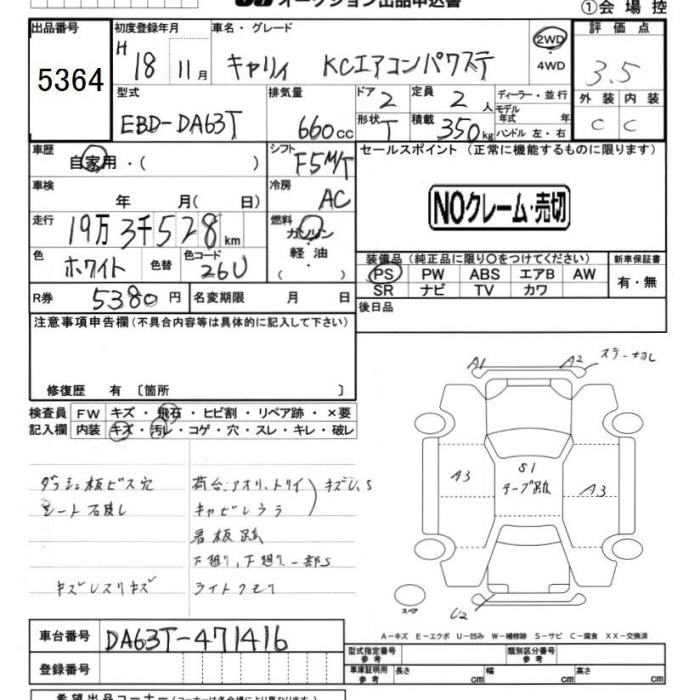 オークション出品申込書
①会場控
出品番号
5364
初度登録年月
H 18 11月
車名・グレード
キャリィ KCエアコンパワステ
2WD
4WD
評価点
3.5
外装 内装
C C
型式
EBD-DA63T
排気量
660cc
ドア 2
形状 T
定員 2人
積載 350kg
ディーラー・並行
モデル年式 年
ハンドル 左・右
車歴
自家用・( )
シフト F5M/T
セールスポイント (正常に機能するものに限ります)
NOクレーム・売切
車検
年 月( 日)
冷房 AC
走行
19万3千528km
燃料
ガソリン
軽油
・( )
色
ホワイト
色替
色コード
26U
装備品 (純正品に限り〇をつけてください)
PS PW ABS エアB AW
SR ナビ TV カワ
新車保証書
有・無
R券 5380円
名変期限 月 日
後日品
注意事項申告欄(不具合内容等は具体的に記入して下さい)
修復歴 有 〔箇所 〕
検査員記入欄
FW キズ・飛石・ヒビ割・リペア跡・×要
内装 キズ・汚レ・コゲ・穴・スレ・キレ・破レ
ダッシュ板ビス穴
シート
荷台、アオリ、トリイ
キャビンウラ
キズU、S
看板跡
下廻り、下廻り一部S
キズ レスリキズ
ライトクモリ
A1
A2
ステー
A3
S1
テープ跡
A3
U2
スペア
A-キズ E-エクボ U-凹み W-補修跡 S-サビ C-腐食 XX-交換済
車台番号
DA63T-471416
登録番号
型式指定番号 参考
類別区分番号 参考
車庫証明用 参考
長さ cm
幅 cm
高さ cm
希望出品コーナー